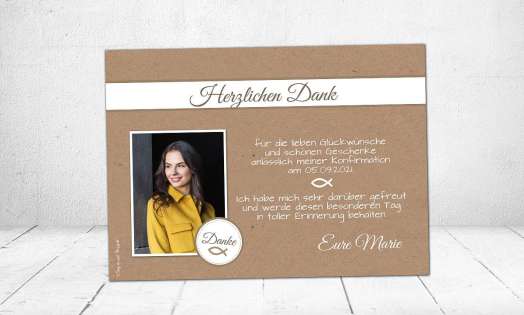 Herzlichen Dank
für die lieben Glückwünsche
und schönen Geschenke
anlässlich meiner Konfirmation
am 05.09.2021.
Ich habe mich sehr darüber gefreut
und werde diesen besonderen Tag
in toller Erinnerung behalten.
Danke
Eure Marie